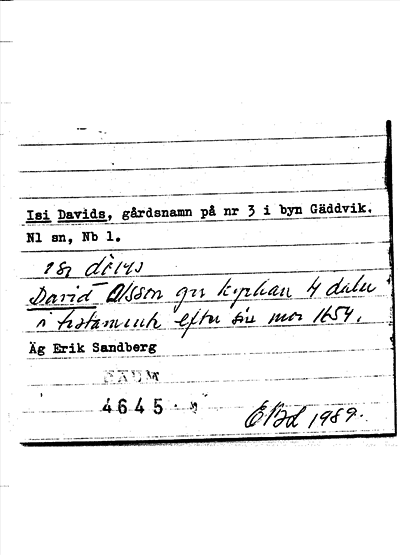 Isi Davids, gårdsnamn på nr 3 i byn Gäddvik.
Nl sn, Nb l.
David Olsson ger kyrkan 4 daler
i testamente efter sin mor 1654.
Äg Erik Sandberg
4645
EBd 1989.